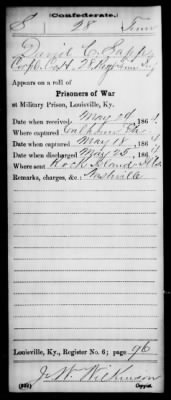 (Confederate.)
S 28 Tenn
David C Sapp
Corpl, Co. H, 28 Regt Tenn Inf
Appears on a roll of
Prisoners of War
at Military Prison, Louisville, Ky.
Date when received May 24, 186 4.
Where captured Calhoun Ga
Date when captured May 18, 186 4.
Date when discharged May 25, 186 4.
Where sent Rock Island Ills
Remarks, charges, &c.: Nashville
Louisville, Ky., Register No. 6; page 96
J. W. Wilkinson
Copyist.